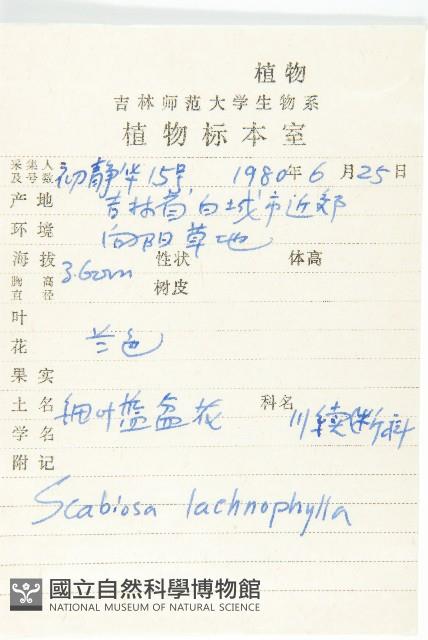 植物
吉林师范大学生物系
植物标本室
采集人及号数 初静华 15号 1980年6月25日
产地 吉林省,白城市近郊
环境 向阳草地
海拔 性状 体高
胸高直径 树皮
叶
花 兰色
果实
土名 细叶蓝盆花 科名 川续断科
学名
附记
Scabiosa lachnophylla
國立自然科學博物館
NATIONAL MUSEUM OF NATURAL SCIENCE